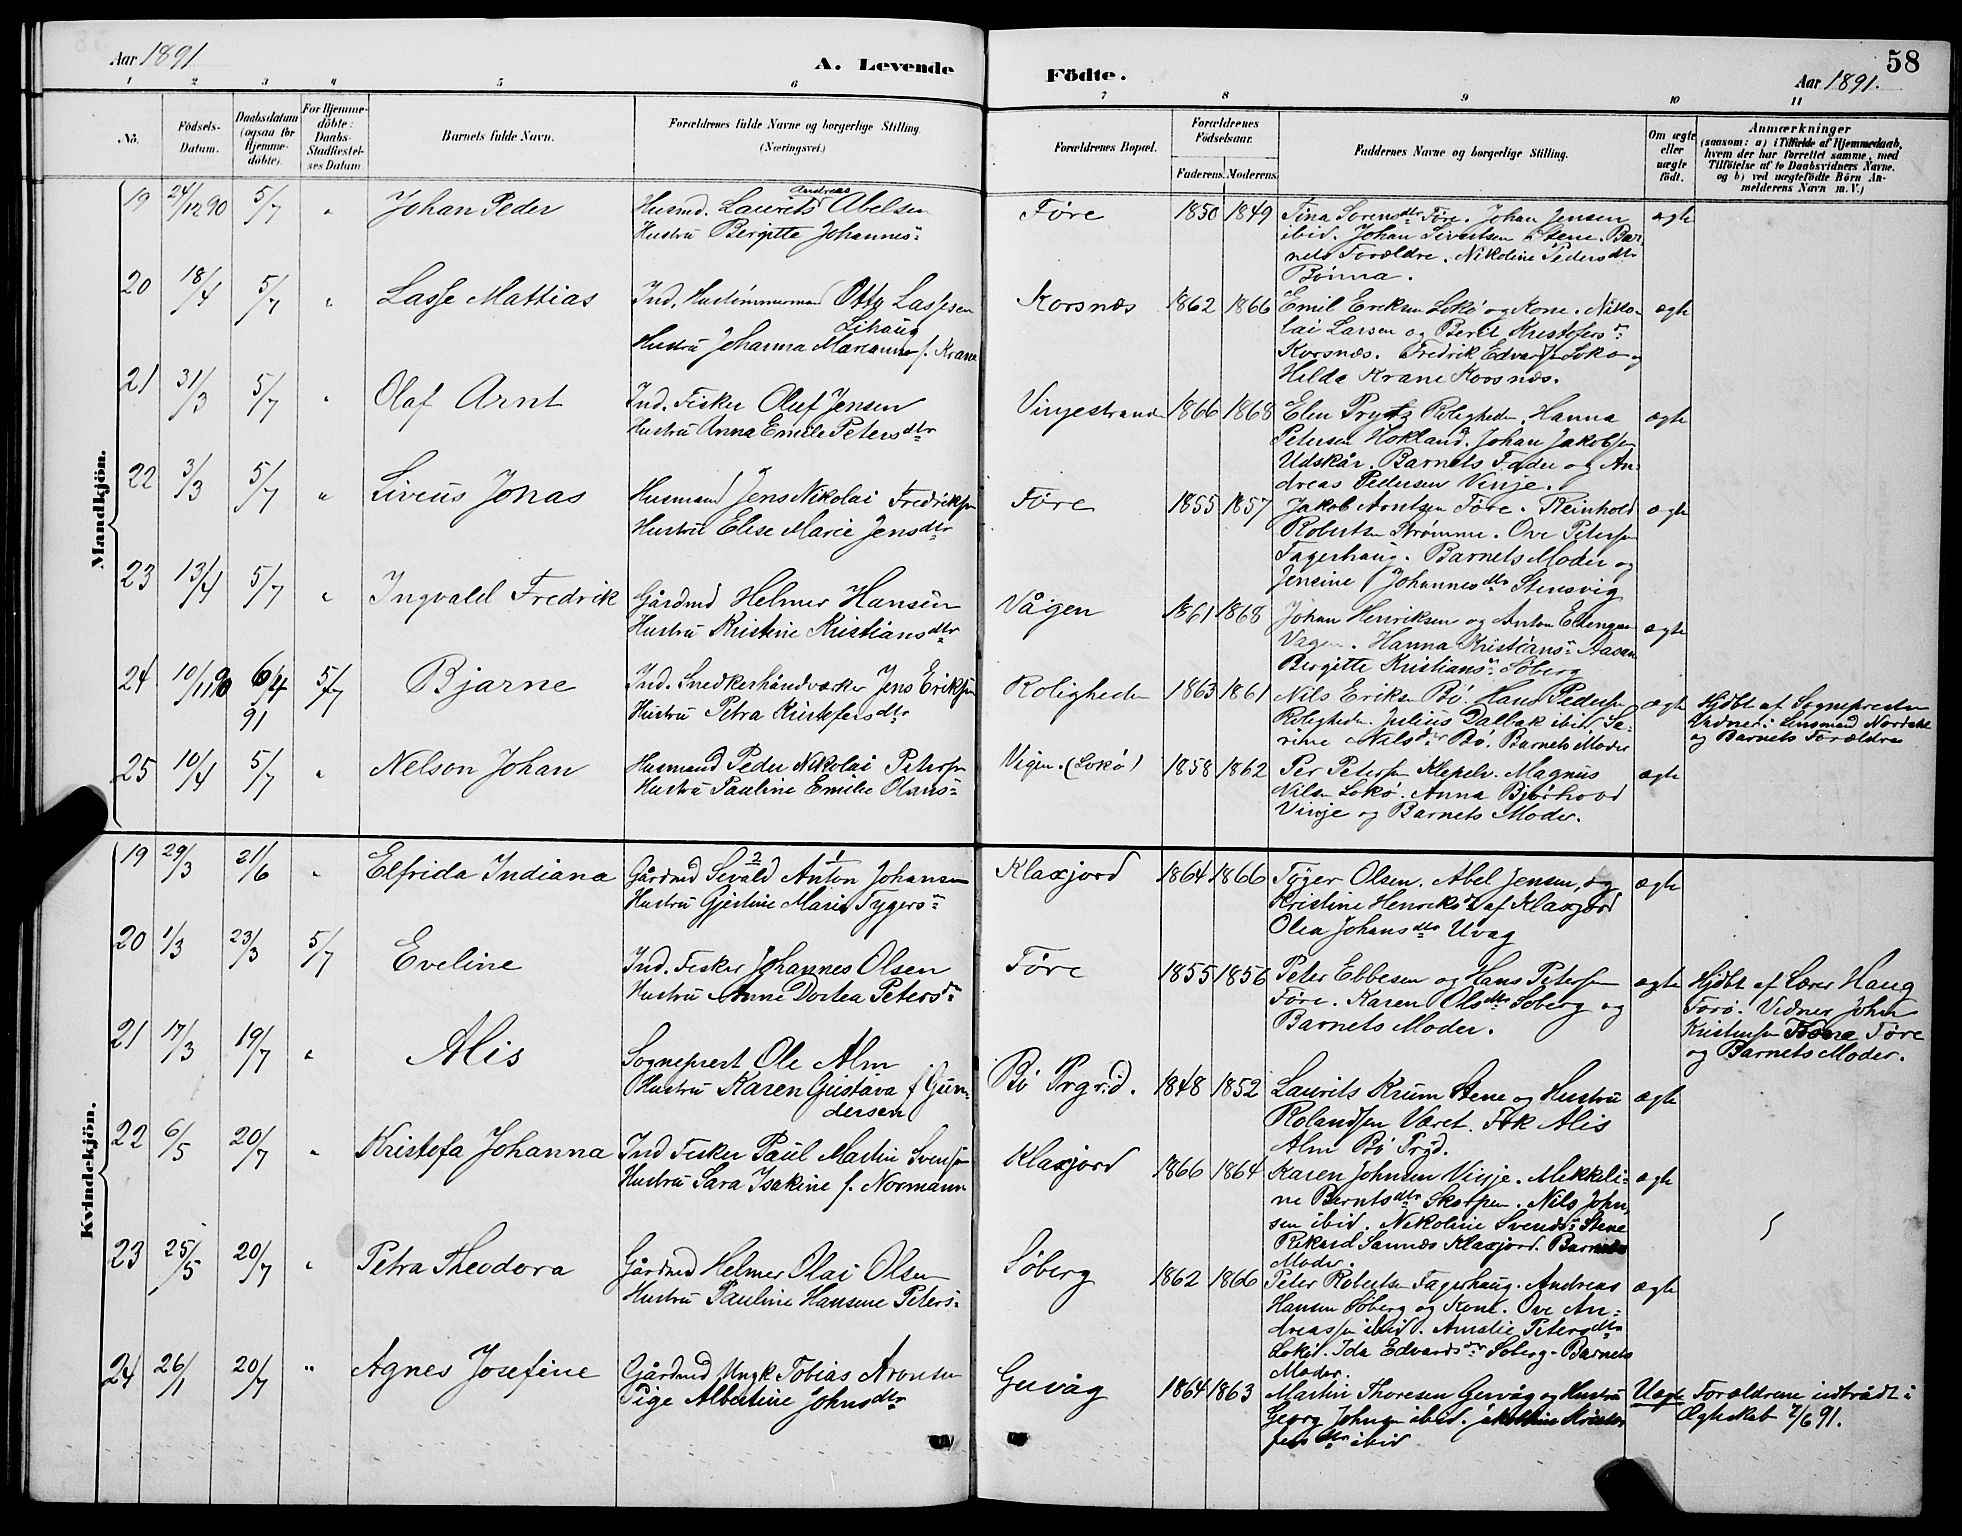 Aar 1891
A. Levende
Födte.
58
Aar 1891.
1 2 3 4 5 6 7 8 9 10 11
No.
Födsels-
Datum.
Daabsdatum
(ogsaa for
Hjemme-
döbte).
For Hjemme-
döbte:
Daabs-
Stadfæstel-
ses Datum.
Barnets fulde Navn.
Forældrenes fulde Navne og borgerlige Stilling.
(Næringsvei.)
Forældrenes Bopæl.
Forældrenes
Födselsaar.
Faderens. Moderens.
Faddernes Navne og borgerlige Stilling.
Om ægte
eller
uægte
født.
Anmærkninger
(saasom: a) i Tilfælde af Hjemmedaab,
hvem der har forrettet samme, med
Tilføielse af to Daabsvidners Navne.
og b) ved uægtefødte Börn An-
melderens Navn m. V.)
Mandkjön.
19 24/12 90 5/7 " Johan Peder
Husmd. Laurits Andreas Abelsen
Hustru Bergitte Johannes
Føre 1850 1849
Tina Sorensdtr Føre. Johan Jensen
ibid. Johan Sivertsen Stene. Bar-
nets Forældre. Nikoline Pedersdtr
Bønna.
ægte
20 18/4 5/7 " Lasse Mattias
Ind. Hustømmermand Otty Lassesen
Lihaug
Hustru Johanna Marianna f. Krane
Korsnæs 1862 1866
Emil Eriksen Lokø og Kone. Niko-
lai Larsen og Berit Kristofers
Korsnæs. Fredrik Edvard Lokø og
Hilda Krane Korsnæs.
ægte
21 31/3 5/7 " Olaf Arnt
Ind. Fisker Oluf Jensen
Hustru Anna Emilie Petersdtr
Vinjestrand 1866 1868
Elen Prytz Roligheden. Hanna
Petersen Hokland. Johan Jakobsen
Udskår. Barnets Fader og An-
dreas Pedersen Vinje.
ægte
22 3/3 5/7 " Liveus Jonas
Husmand Jens Nikolai Fredriksen
Hustru Elise Marie Jensdtr
Føre 1855 1857
Jakob Arntsen Føre. Reinhold
Robertsen Strømme. Ove Petersen
Fagerhaug. Barnets Moder og
Jensine Johannesdtr Stensvig
ægte
23 13/4 5/7 " Ingvald Fredrik
Gårdmd Helmer Hansen
Hustru Kristine Kristiansdtr
Vågen 1861 1868
Johan Henriksen og Anton
Vågen. Hanna Kristians
Bergitte Kristians Søberg
ægte
24 10/11 90 6/4 91 5/7 Bjarne
Ind. Snedkerhåndværker Jens Eriksen
Hustru Petra Kristofersdtr
Roligheden 1863 1861
Nils Eriksen Bø. Hans Pedersen
Roligheden. Julius Dalbak ibid. Sa-
rine Nilsdtr Bø. Barnets Moder
ægte
Hjdbt af Sognepresten
Vidner: Lensmand Nordahl
og Barnets Forældre
25 10/4 5/7 " Nelson Johan
Husmand Peder Nikolai Petersen
Hustru Pauline Emilie Olaus
Vigen. (Lokø) 1858 1862
Per Petersen Klepelv. Magnus
Nilsen Lokø. Anna Bjørhovd
Vinje og Barnets Moder.
ægte
Kvindekjön.
19 29/3 21/6 " Elfrida Indiana
Gårdmd Sivald 2 Anton 1 Johansen
Hustru Gjertine Marie Tygers
Klaxjord 1864 1866
Tyger Olsen. Abel Jensen, og
Kristine Henriksd af Klaxjord
Olea Johansdtr Uvag
ægte
20 1/3 23/3 5/7 Eveline
Ind. Fisker Johannes Olsen
Hustru Anne Dortea Peters
Føre 1855 1856
Peter Ebbesen og Hans Petersen
Føre. Karen Olsdtr Søberg og
Barnets Moder.
ægte
Hjdbt af Lærer Haug
Førø. Vidner John
Kristensen Føre
og Barnets Moder.
21 17/3 19/7 " Alis
Sogneprest Ole Alm
Hustru Karen Gustava f Gun-
dersen
Bø Prgrd. 1848 1852
Laurits Krum Stene og Hustru
Rolandsen Været. Frk Alis
Alm Bø Prgd.
ægte
22 6/5 20/7 " Kristofa Johanna
Ind Fisker Paul Martin Svensen
Hustru Sara Isakine f. Normann
Klaxjord 1866 1864
Karen Johnsen Vinje. Mekkeli-
ne Barntsdtr Skorpen. Nils John-
sen ibid. Nikoline Svends Stene
Rikard Sannæs Klaxjord. Barnets
Moder.
ægte
23 25/5 20/7 " Petra Theodora
Gårdmd Helmer Olai Olsen
Hustru Pauline Hansine Peters
Søberg 1862 1866
Peter Robertsen Fagerhaug. Andreas
Hansen Søberg og Kone. Ove An-
dreassen ibid. Amalie Petersdtr
Lokø. Ida Edvardsdtr Søberg. Barnets
Moder.
ægte
24 26/1 20/7 " Agnes Josefine
Gårdmd Ungk Tobias Aronsen
Pige Albertine Johnsdtr
Guvåg 1864 1863
Martin Thoresen Guvåg og Hustru
Georg Johnsen ibid. Jakobine Kristo-
fersdtr ibid
Uægte
Forældrene indtrådt i
Ægteskab 2/6 91.